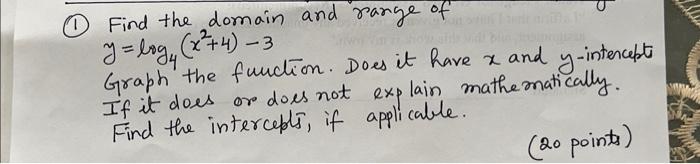 ① Find the domain and range of
y = log₄ (x²+4) - 3
Graph the function. Does it have x and y-intercepts
If it does or does not explain mathematically.
Find the intercepts, if applicable.
(20 points)